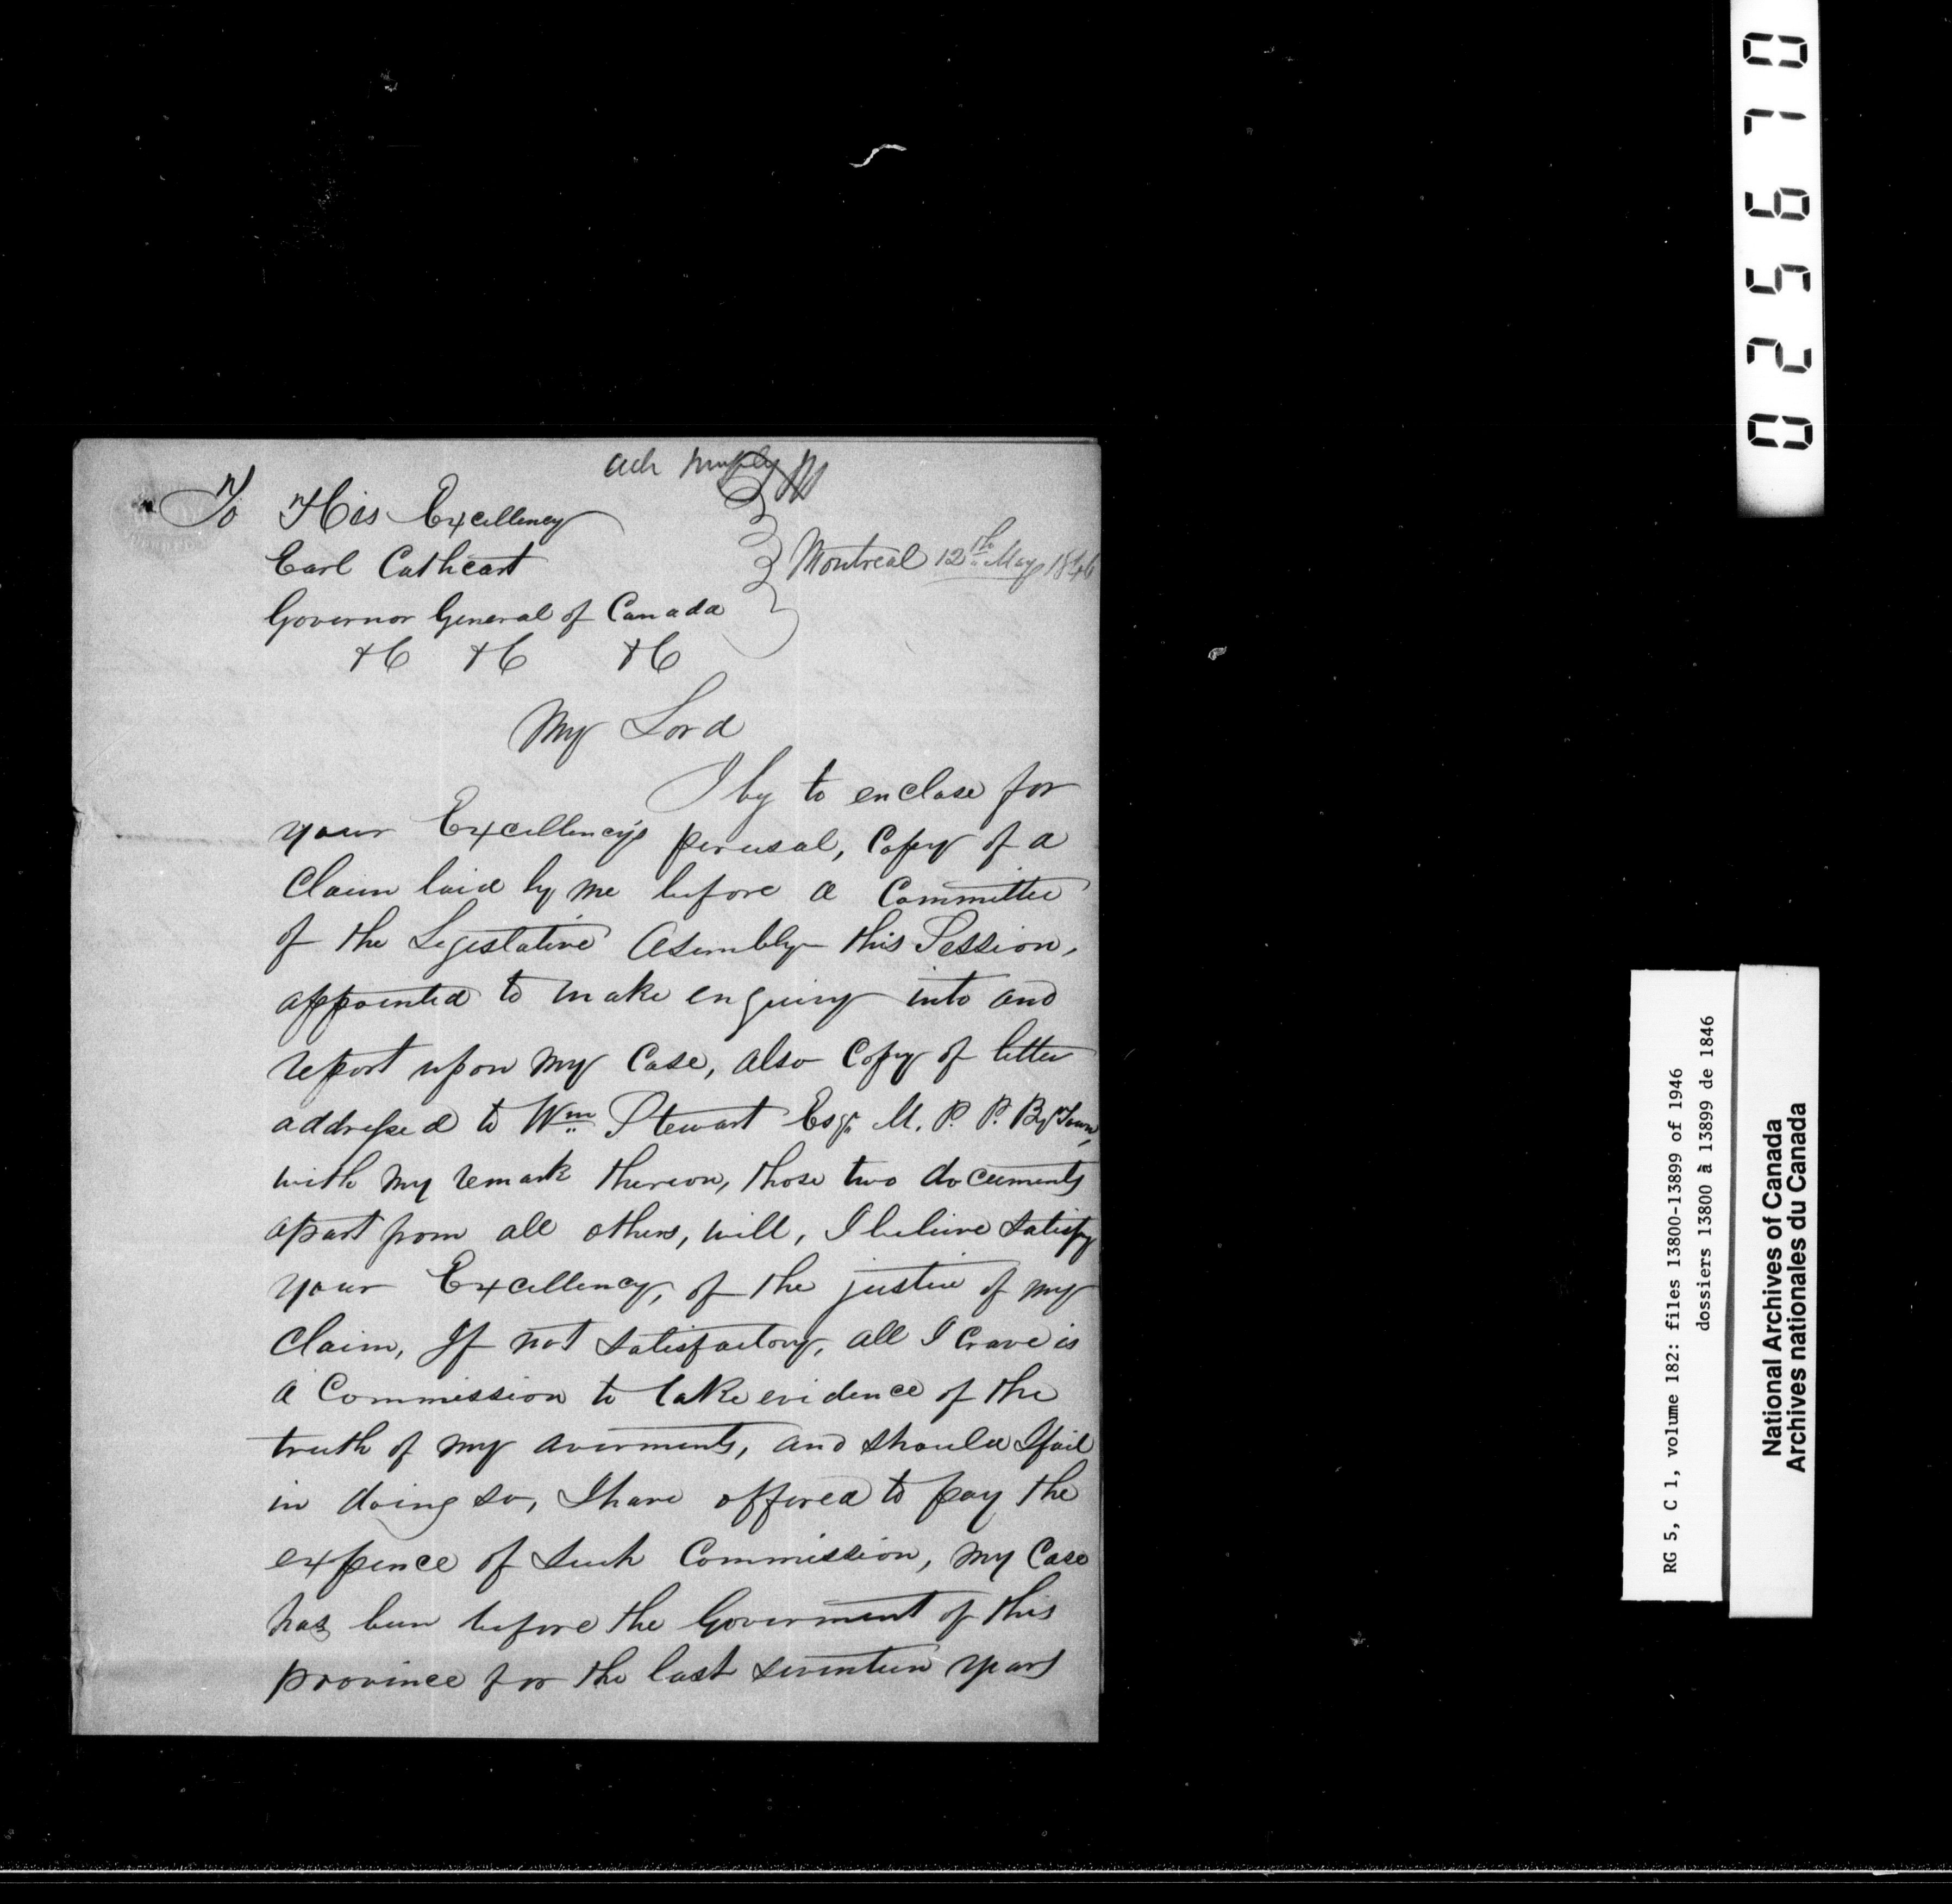 Ack
To His Excellency
Earl Cathcart
Governor General of Canada
&C &C &C
Montreal 12th May 1846
My Lord
I beg to enclose for
your Excellency's perusal, Copy of a
Claim laid by me before a Committee
of the Legislative Asembly this Session,
appointed to make enquiry into and
report upon my Case, also Copy of letter
addressed to Wm Stewart Esqr. M. P. P. By Town,
with my remark thereon, those two documents
apart from all others, will, I believe satisfy
your Excellency, of the justice of my
Claim, If not satisfactory, all I Crave is
a Commission to take evidence of the
truth of my averments, and should I fail
in doing so, I have offered to pay the
expence of such Commission, my Case
has been before the Goverment of this
province for the last seventeen years
025610
RG 5, C 1, volume 182: files 13800-13899 of 1946
dossiers 13800 à 13899 de 1846
National Archives of Canada
Archives nationales du Canada